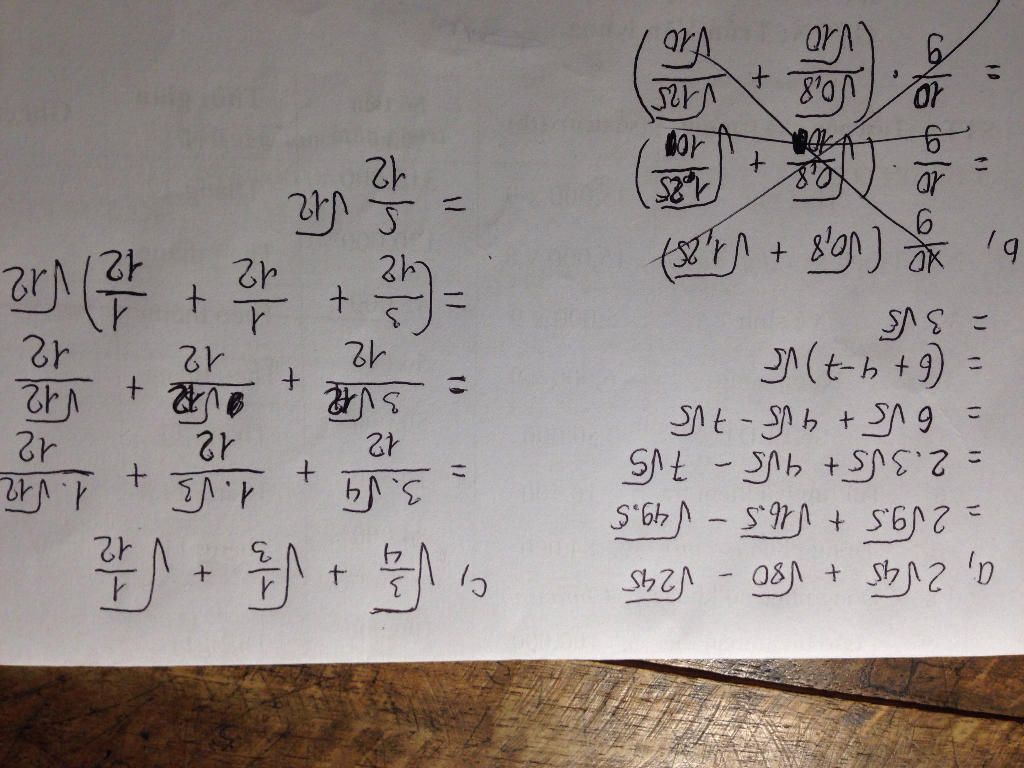 a, 2√45 + √80 − √245
= 2√9.5 + √16.5 − √49.5
= 2.3√5 + 4√5 − 7√5
= 6√5 + 4√5 − 7√5
= (6 + 4 − 7)√5
= 3√5
b, 10/9 (√0,8 + √1,25)
= 10/9 · (√(0,8/10) + √(1,25/100))
= 10/9 · (√0,8/√10 + √125/√10)
c, √(3/4) + √(1/3) + √(1/12)
= 3.√4/12 + 1.√3/12 + 1.√12/12
= 3√12/12 + √12/12 + √12/12
= (3/12 + 1/12 + 1/12)√12
= 5/12 √12